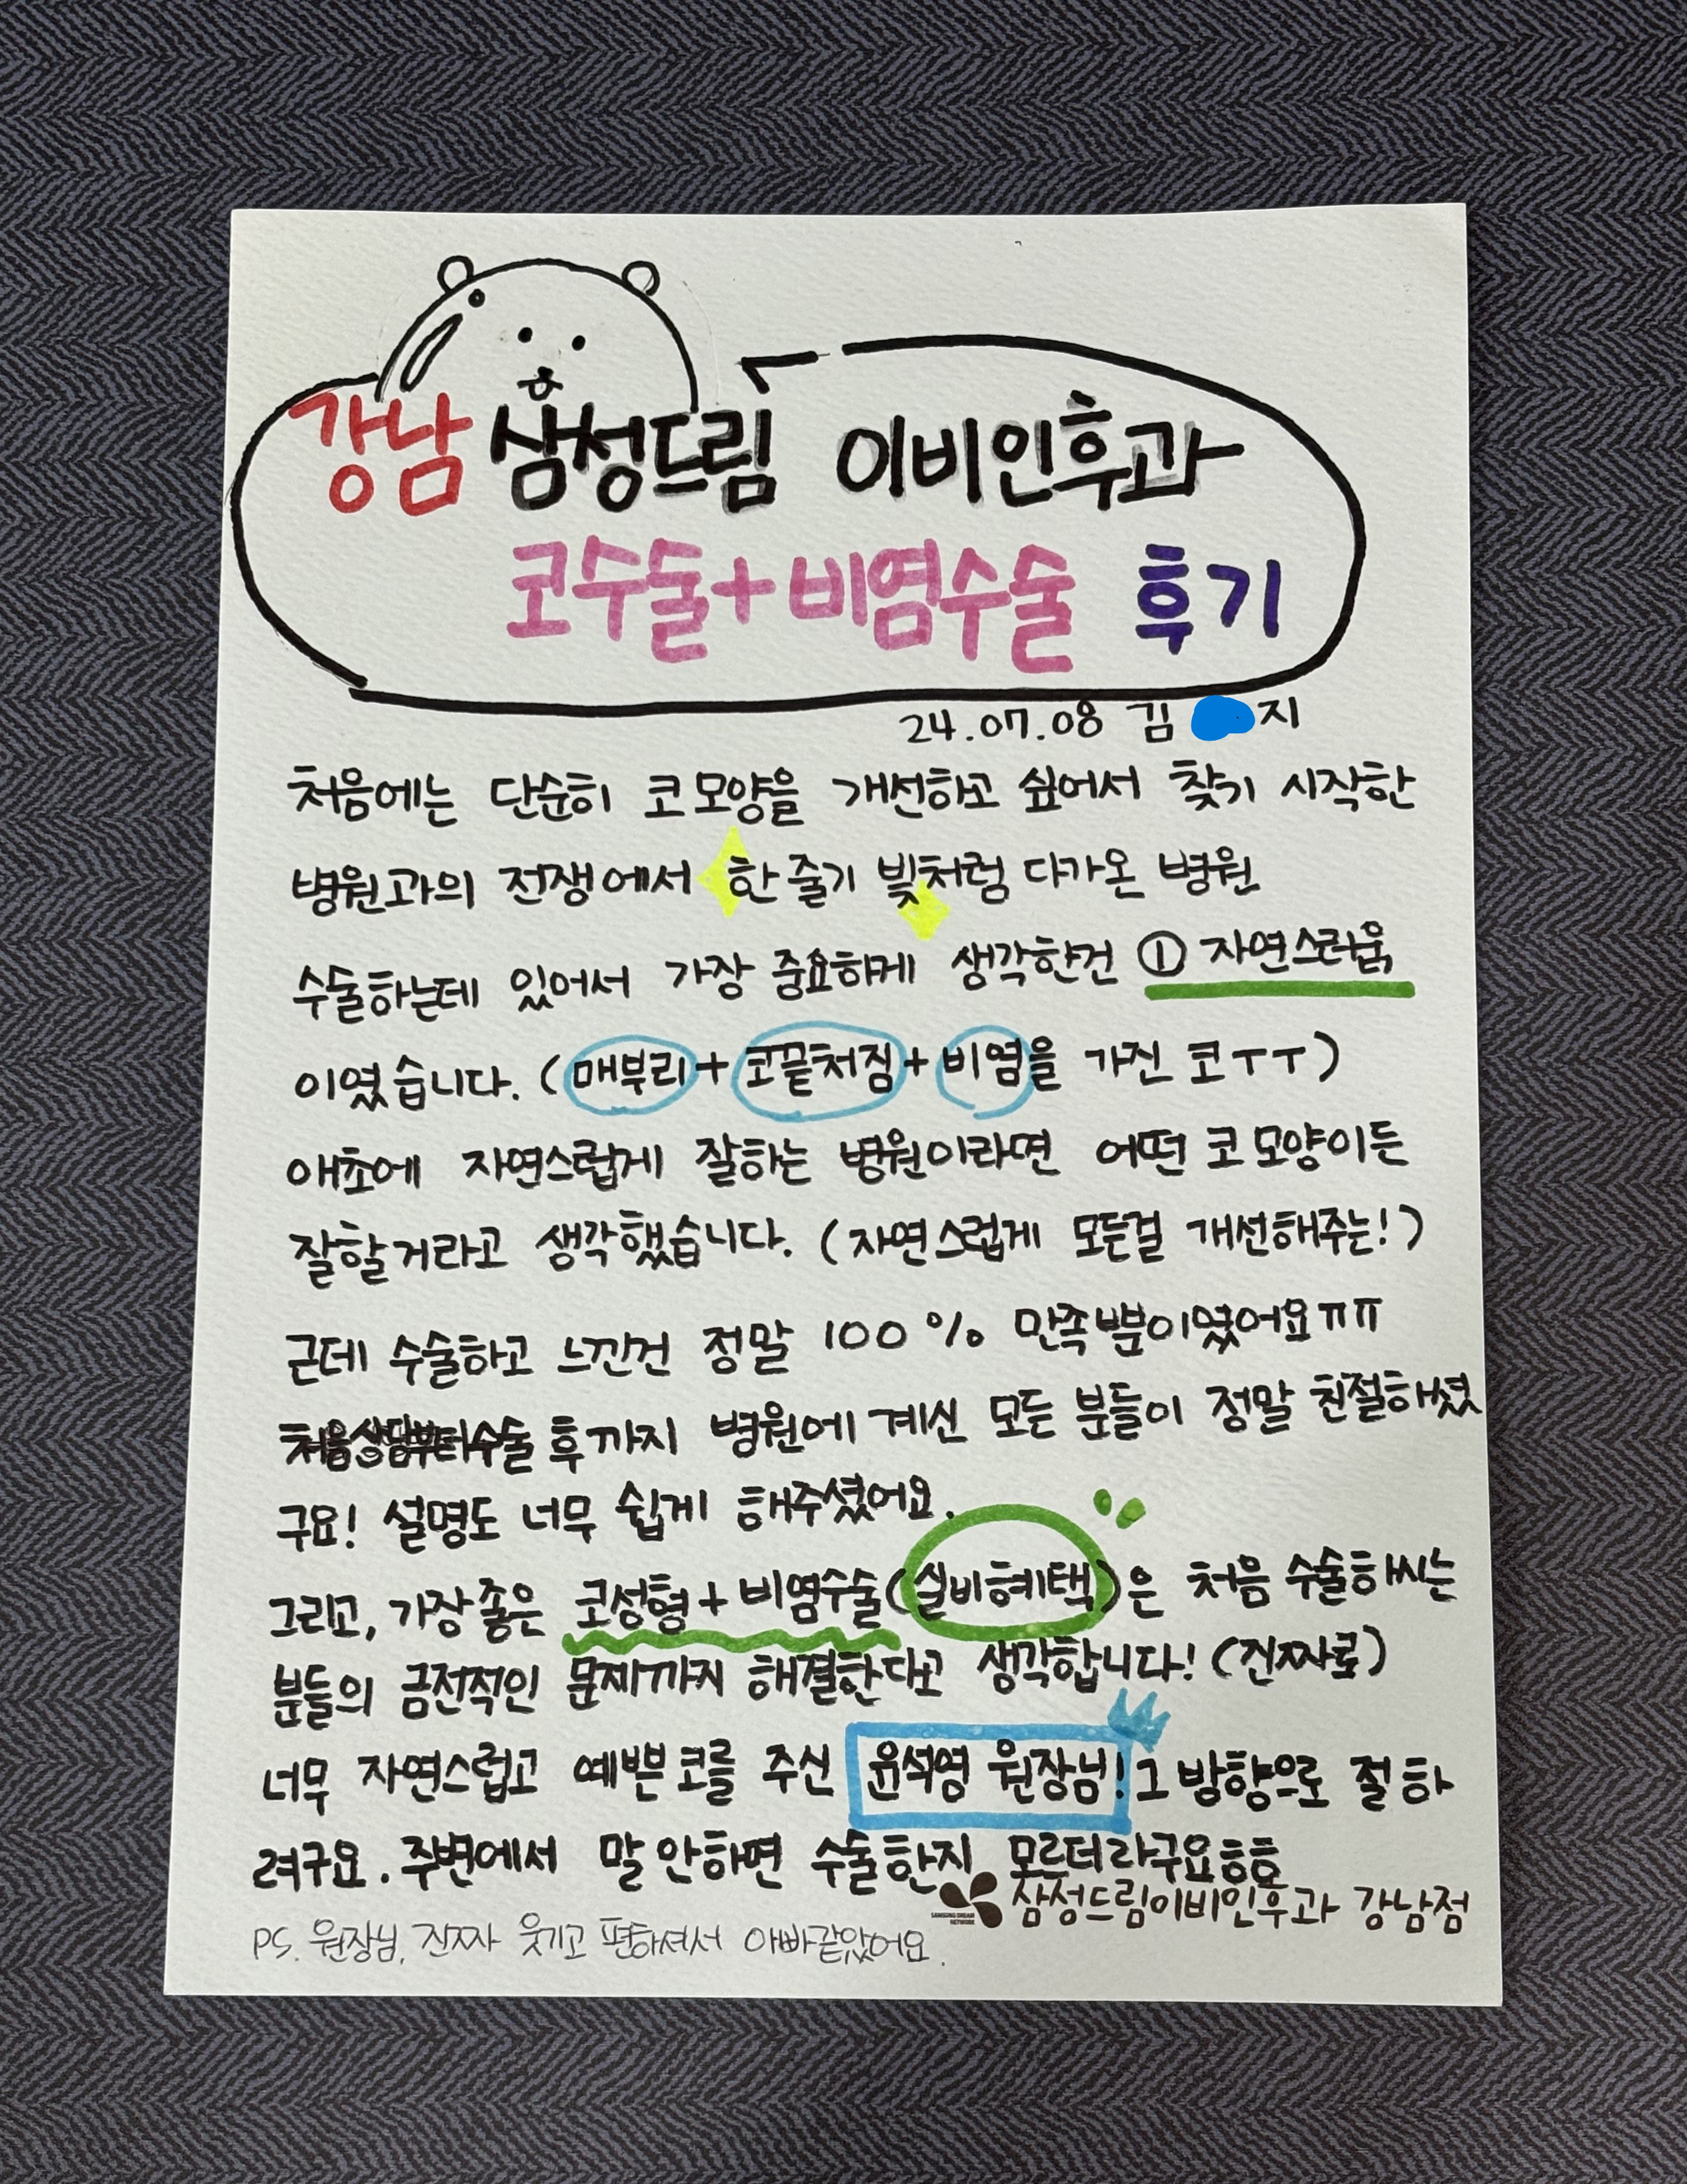 강남 삼성드림 이비인후과
코수술+비염수술 후기
24.07.08 김 지
처음에는 단순히 코 모양을 개선하고 싶어서 찾기 시작한
병원과의 전쟁에서 한 줄기 빛처럼 다가온 병원
수술하는데 있어서 가장 중요하게 생각한건 ① 자연스러움
이였습니다. (매부리+코끝처짐+비염을 가진 코ㅜㅜ)
애초에 자연스럽게 잘하는 병원이라면 어떤 코 모양이든
잘할거라고 생각했습니다. (자연스럽게 모든걸 개선해주는!)
근데 수술하고 느낀건 정말 100% 만족뿐이였어요ㅠㅠ
처음상담부터수술 후까지 병원에 계신 모든 분들이 정말 친절하셨
구요! 설명도 너무 쉽게 해주셨어요.
그리고, 가장 좋은 코성형+비염수술(실비혜택)은 처음 수술하시는
분들의 금전적인 문제까지 해결한다고 생각합니다! (진짜로)
너무 자연스럽고 예쁜 코를 주신 윤석영 원장님! 그 방향으로 절 하
려구요. 주변에서 말 안하면 수술한지 모르더라구요ㅎㅎ
SAMSUNG DREAM NETWORK 삼성드림이비인후과 강남점
PS. 원장님, 진짜 웃기고 편하셔서 아빠같았어요.